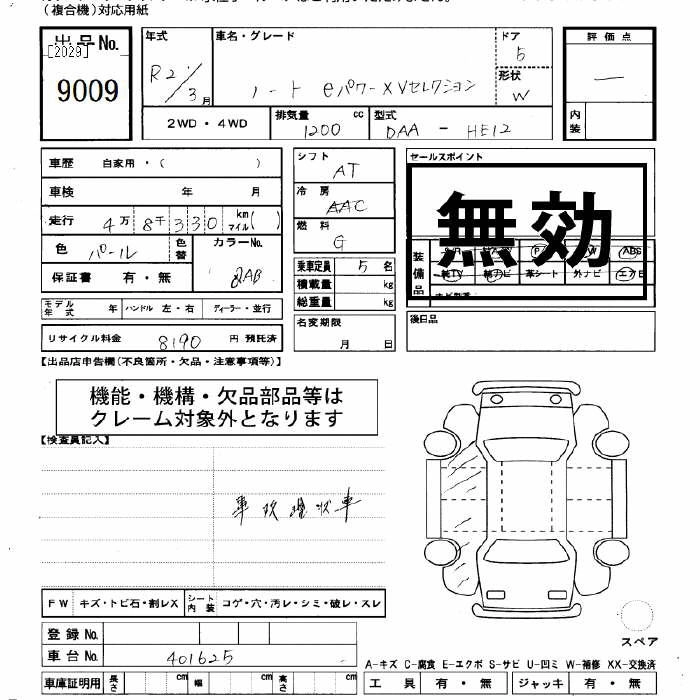 (複合機)対応用紙
出品No.
[2029]
9009
年式
R2/3月
車名・グレード
ノート eパワーXVセレクション
ドア
5
形状
W
評価点
一
内装
2WD・4WD
排気量 cc
1200
型式
DAA - HE12
車歴 自家用・( )
車検 年 月
走行 4万 8千 3 3 0 km マイル( )
色 パール
色替
カラーNo.
QAB
保証書 有・無
モデル年式 年
ハンドル 左・右
ディーラー・並行
リサイクル料金 8190 円 預託済
シフト
AT
冷房
AAC
燃料
G
乗車定員 5 名
積載量 kg
総重量 kg
名変期限
月 日
セールスポイント
無効
装備品
ABS
革シート 外ナビ エアB
後日品
【出品店申告欄(不良箇所・欠品・注意事項等)】
機能・機構・欠品部品等は
クレーム対象外となります
【検査員記入】
FW キズ・トビ石・割レX
シート内装 コゲ・穴・汚レ・シミ・破レ・スレ
登録No.
車台No. 401625
車庫証明用 長さ cm 幅 cm 高さ cm
スペア
A-キズ C-腐食 E-エクボ S-サビ U-凹ミ W-補修 XX-交換済
工具 有・無
ジャッキ 有・無